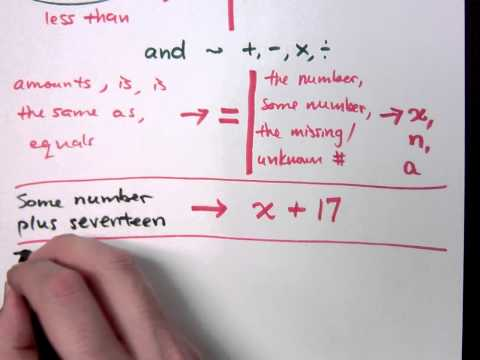 less than
and ~ +, -, x, ÷
amounts, is, is
the same as,
equals
→ =
the number,
some number,
the missing/
unknown #
→ x,
n,
a
Some number
plus seventeen
→ x + 17